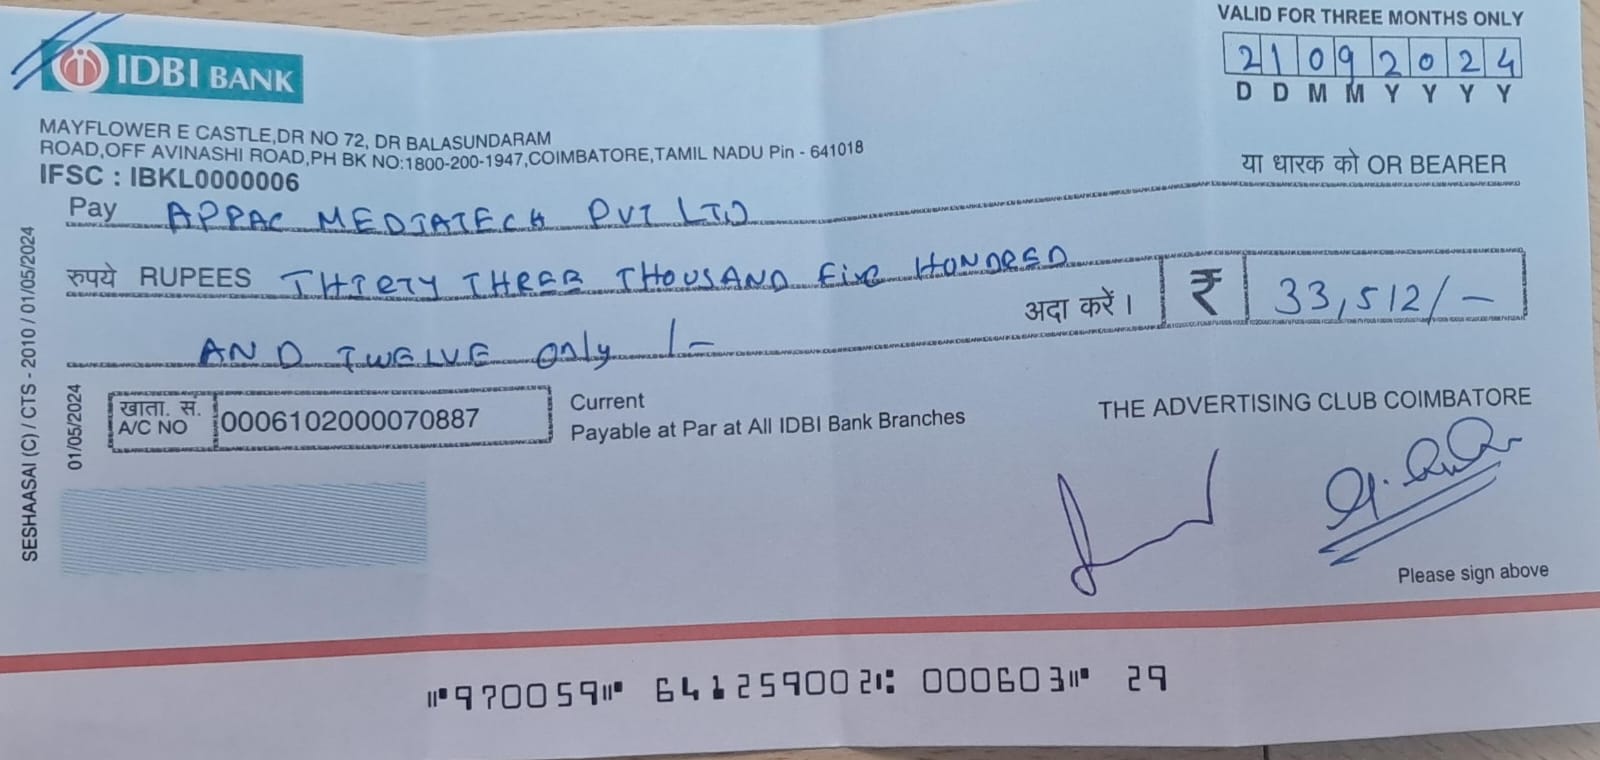 VALID FOR THREE MONTHS ONLY
21092024
D D M M Y Y Y Y
IDBI BANK
MAYFLOWER E CASTLE,DR NO 72, DR BALASUNDARAM
ROAD,OFF AVINASHI ROAD,PH BK NO:1800-200-1947,COIMBATORE,TAMIL NADU Pin - 641018
IFSC : IBKL0000006
या धारक को OR BEARER
Pay APPAC MEDIATECH PVT LTD
रुपये RUPEES THIRTY THREE THOUSAND FIVE HUNDRED
अदा करें । ₹ 33,512/-
AND TWELVE only /-
खाता. सं.
A/C NO 0006102000070887
Current
Payable at Par at All IDBI Bank Branches
THE ADVERTISING CLUB COIMBATORE
Please sign above
SESHAASAI (C) / CTS - 2010 / 01/05/2024
01/05/2024
⑈970059⑈ 641259002⑆ 000603⑈ 29